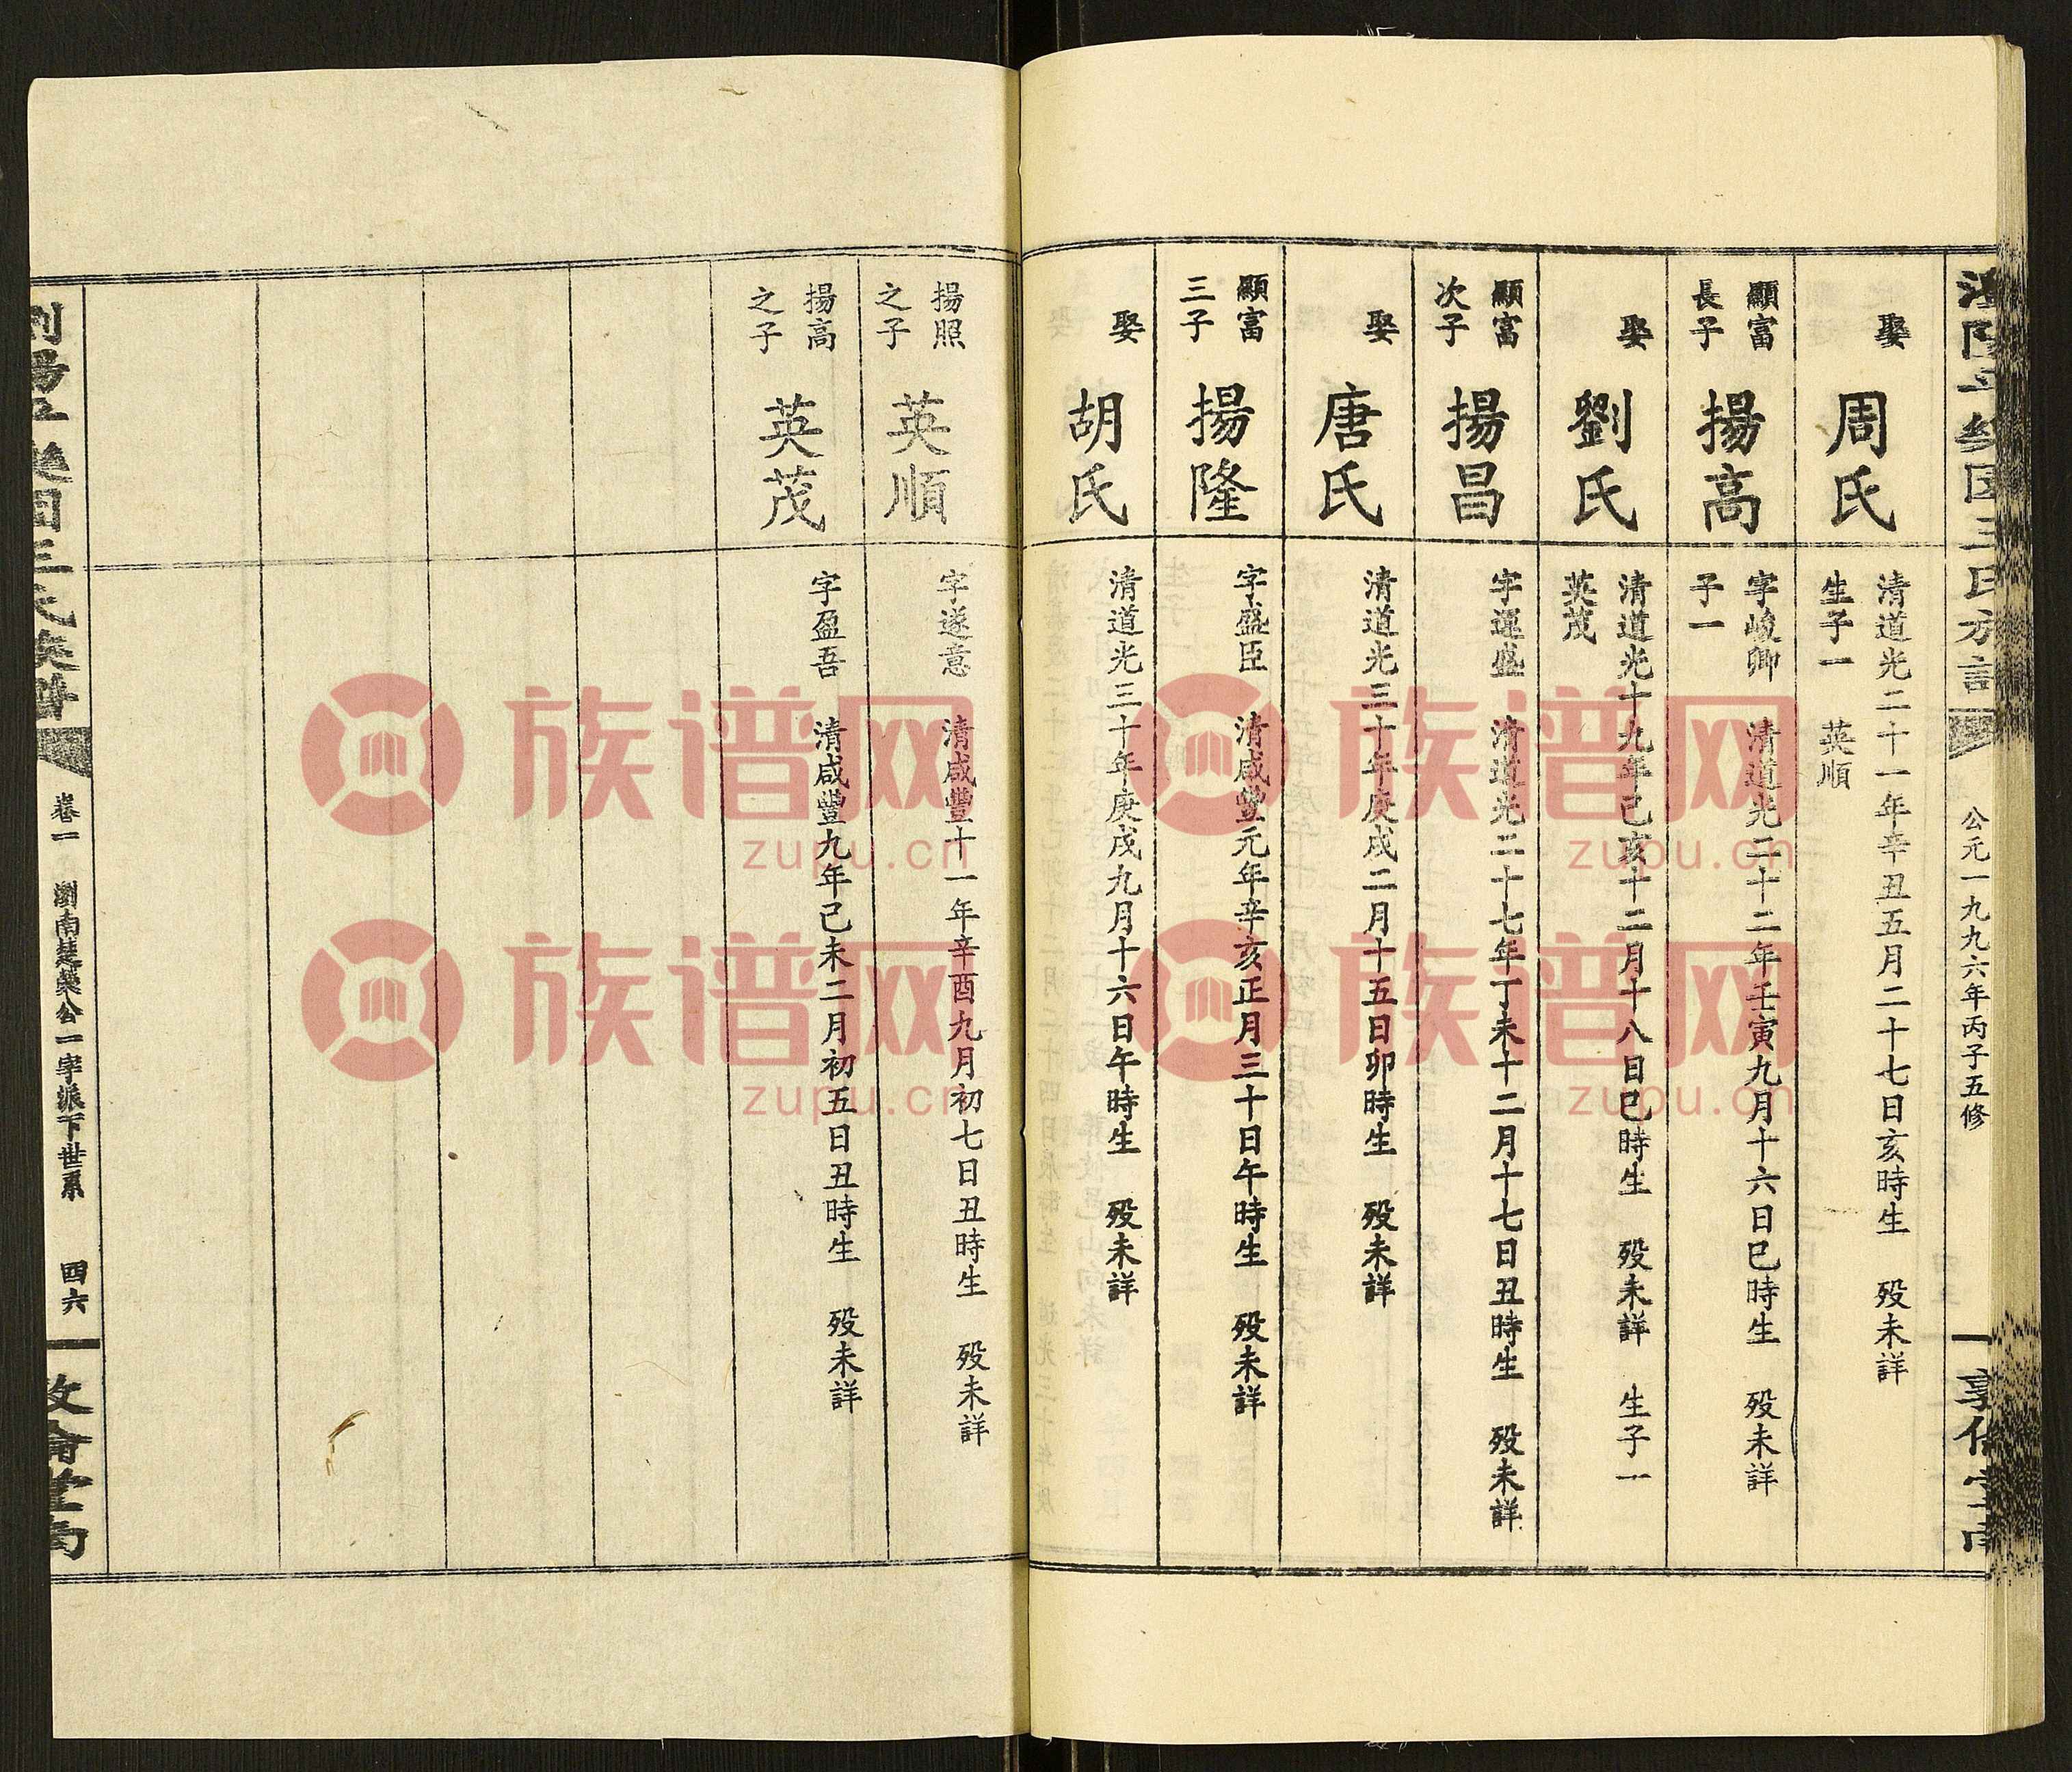 公元一九九六年丙子五修
娶
周氏
清道光二十一年辛丑五月二十七日亥時生 歿未詳
生子一 英順
顯富
長子
揚高
字峻卿 清道光二十二年壬寅九月十六日巳時生 歿未詳
子一
娶
劉氏
清道光十九年己亥十二月十八日巳時生 歿未詳 生子一
英茂
顯富
次子
揚昌
字運盛 清道光二十七年丁未十二月十七日丑時生 歿未詳
娶
唐氏
清道光三十年庚戌二月十五日卯時生 歿未詳
顯富
三子
揚隆
字盛臣 清咸豐元年辛亥正月三十日午時生 歿未詳
娶
胡氏
清道光三十年庚戌九月十六日午時生 歿未詳
揚照
之子
英順
字遂意 清咸豐十一年辛酉九月初七日丑時生 歿未詳
揚高
之子
英茂
字盈吾 清咸豐九年己未二月初五日丑時生 歿未詳
卷一 瀏南楚榮公一宇派下世系 四六
族谱网
zupu.cn
族谱网
zupu.cn
族谱网
zupu.cn
族谱网
zupu.cn